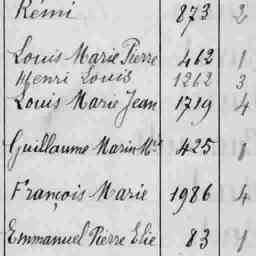 Rémi 873 2
Louis Marie Pierre 462 1
Henri Louis 1262 3
Louis Marie Jean 1719 4
Guillaume Marin Mie 425 1
François Marie 1986 4
Emmanuel Pierre Elie 83 1